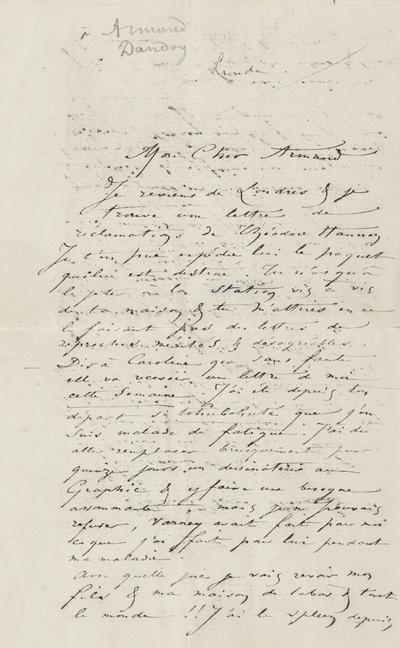 à Armand
Dandoy
Lundi
Mon Cher Armand
Je reviens de Londres & je
trouve une lettre de
réclamations de Théodore Hannon
Je t'en prie expédie lui le paquet
qui lui est destiné. Tu n'as qu'à
le jeter à la station vis à vis
de ta maison & tu m'attires en ne
le faisant pas des lettres de
reproches mérités & désagréables.
Dis à Caroline que sans faute
elle va recevoir une lettre de moi
cette semaine. J'ai été depuis ton
départ si que j'en
suis malade de fatigue. J'ai dû
aller remplacer brusquement pour
quinze jours un dessinateur au
Graphic & y faire une besogne
assommante, mais je ne pouvais
refuser, Varney avait fait pour moi
ce que j'ai fait pour lui pendant
ma maladie.
Avec quelle joie je vais revoir mon
fils & ma maison de là bas & tout
le monde !! J'ai le spleen depuis